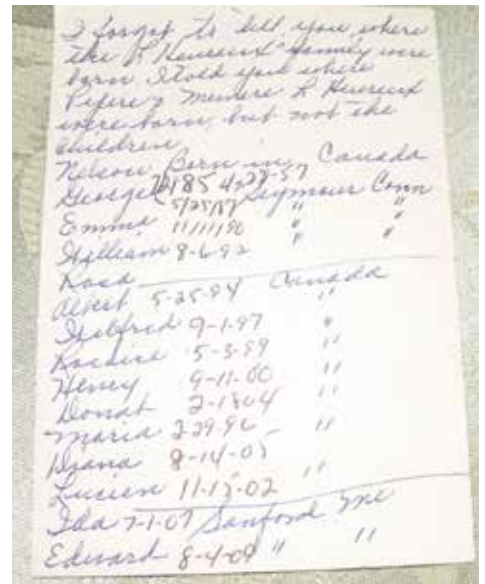 I forgot to tell you where
the L'Heureux family were
born I told you where
Pepere, Memere L'Heureux
were born, but not the
children
Nelson Born in Canada
George 4-27-57 Seymour Conn
Emma 5/25/87 " "
William 11/11/90 " "
Rosa 8-6-92
Albert 5-25-94 Canada
Wilfred 9-1-97 "
5-3-99 "
Henry 9-11-00 "
Donat 2-1804 "
Maria 2 29.96 "
Diana 8-14-05
Lucien 11-15-02 "
Ida 7-1-07 Sanford Me
Edward 8-4-09 " "